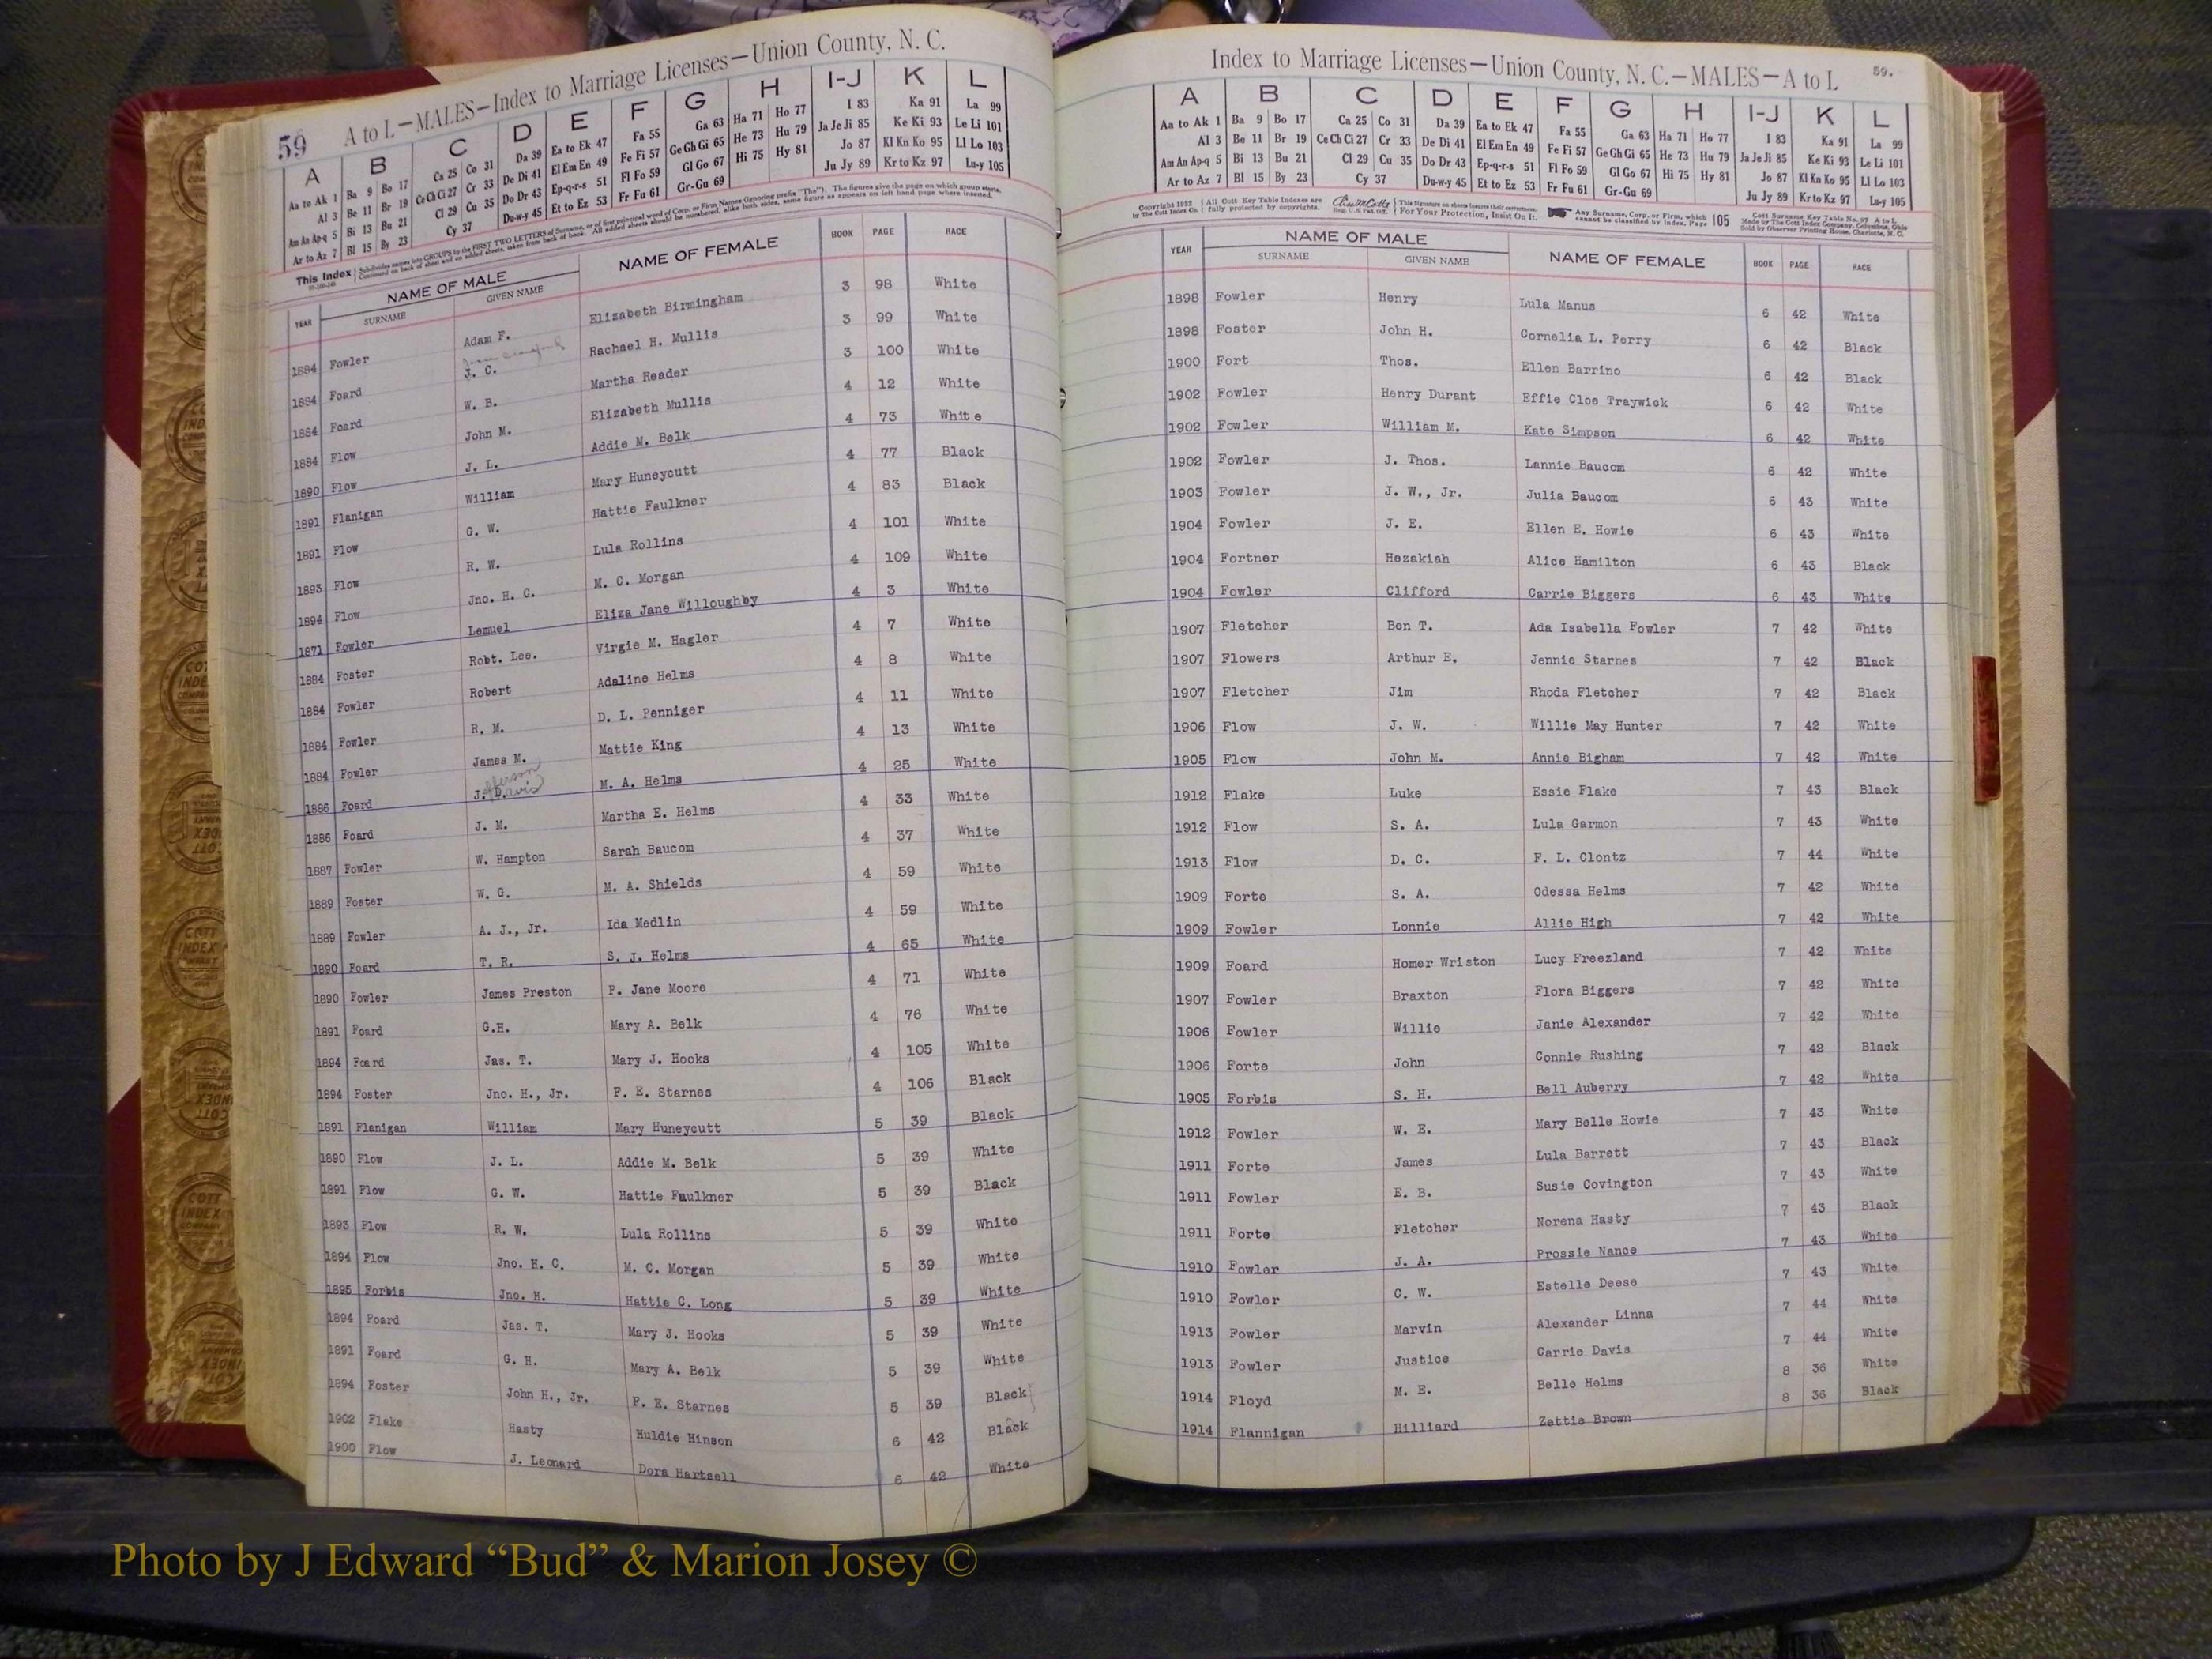 59 A to L—MALES—Index to Marriage Licenses—Union County, N. C.
A B C D E F G H I-J K L
Aa to Ak 1 Ba 9 Bo 17 Ca 25 Co 31 Da 39 Ea to Ek 47 Fa 55 Ga 63 Ha 71 Ho 77 I 83 Ka 91 La 99
Al 3 Be 11 Br 19 Ce Ch Ci 27 Cr 33 De Di 41 El Em En 49 Fe Fi 57 Ge Gh Gi 65 He 73 Hu 79 Ja Je Ji 85 Ke Ki 93 Le Li 101
Am An Ap-q 5 Bi 13 Bu 21 Cl 29 Cu 35 Do Dr 43 Ep-q-r-s 51 Fl Fo 59 Gl Go 67 Hi 75 Hy 81 Jo 87 Kl Kn Ko 95 Ll Lo 103
Ar to Az 7 Bl 15 By 23 Cy 37 Du-w-y 45 Et to Ez 53 Fr Fu 61 Gr-Gu 69 Ju Jy 89 Kr to Kz 97 Lu-y 105
This Index Subdivides names into GROUPS by the FIRST TWO LETTERS of Surname, or of first principal word of Corp. or Firm Names (ignoring prefix "The"). The figures give the page on which group starts.
Continued on back of sheet and on added sheets, taken from back of book. All added sheets should be numbered, alike both sides, same figure as appears on left hand page where inserted.
YEAR NAME OF MALE NAME OF FEMALE BOOK PAGE RACE
SURNAME GIVEN NAME
1884 Fowler Adam F. Elizabeth Birmingham 3 98 White
1884 Foard J. C. Rachael H. Mullis 3 99 White
1884 Foard W. B. Martha Reader 3 100 White
1884 Flow John M. Elizabeth Mullis 4 12 White
1890 Flow J. L. Addie M. Belk 4 73 White
1891 Flanigan William Mary Huneycutt 4 77 Black
1891 Flow G. W. Hattie Faulkner 4 83 Black
1893 Flow R. W. Lula Rollins 4 101 White
1894 Flow Jno. H. C. M. C. Morgan 4 109 White
1871 Fowler Lemuel Eliza Jane Willoughby 4 3 White
1884 Foster Robt. Lee. Virgie M. Hagler 4 7 White
1884 Fowler Robert Adaline Helms 4 8 White
1884 Fowler R. M. D. L. Penniger 4 11 White
1884 Fowler James M. Mattie King 4 13 White
1886 Foard J. D. efferson avis M. A. Helms 4 25 White
1886 Foard J. M. Martha E. Helms 4 33 White
1887 Fowler W. Hampton Sarah Baucom 4 37 White
1889 Foster W. G. M. A. Shields 4 59 White
1889 Fowler A. J., Jr. Ida Medlin 4 59 White
1890 Foard T. R. S. J. Helms 4 65 White
1890 Fowler James Preston P. Jane Moore 4 71 White
1891 Foard G.H. Mary A. Belk 4 76 White
1894 Foard Jas. T. Mary J. Hooks 4 105 White
1894 Foster Jno. H., Jr. F. E. Starnes 4 106 Black
1891 Flanigan William Mary Huneycutt 5 39 Black
1890 Flow J. L. Addie M. Belk 5 39 White
1891 Flow G. W. Hattie Faulkner 5 39 Black
1893 Flow R. W. Lula Rollins 5 39 White
1894 Flow Jno. H. C. M. C. Morgan 5 39 White
1895 Forbis Jno. H. Hattie C. Long 5 39 White
1894 Foard Jas. T. Mary J. Hooks 5 39 White
1891 Foard G. H. Mary A. Belk 5 39 White
1894 Foster John H., Jr. F. E. Starnes 5 39 Black
1902 Flake Hasty Huldie Hinson 6 42 Black
1900 Flow J. Leonard Dora Hartsell 6 42 White
Index to Marriage Licenses—Union County, N. C.—MALES—A to L 59.
A B C D E F G H I-J K L
Aa to Ak 1 Ba 9 Bo 17 Ca 25 Co 31 Da 39 Ea to Ek 47 Fa 55 Ga 63 Ha 71 Ho 77 I 83 Ka 91 La 99
Al 3 Be 11 Br 19 Ce Ch Ci 27 Cr 33 De Di 41 El Em En 49 Fe Fi 57 Ge Gh Gi 65 He 73 Hu 79 Ja Je Ji 85 Ke Ki 93 Le Li 101
Am An Ap-q 5 Bi 13 Bu 21 Cl 29 Cu 35 Do Dr 43 Ep-q-r-s 51 Fl Fo 59 Gl Go 67 Hi 75 Hy 81 Jo 87 Kl Kn Ko 95 Ll Lo 103
Ar to Az 7 Bl 15 By 23 Cy 37 Du-w-y 45 Et to Ez 53 Fr Fu 61 Gr-Gu 69 Ju Jy 89 Kr to Kz 97 Lu-y 105
Copyright 1922 All Cott Key Table Indexes are This Signature on sheets insures their correctness. Any Surname, Corp. or Firm, which 105 Cott Surname Key Table No. 97 A to L
by The Cott Index Co. fully protected by copyrights. Reg. U.S. Pat. Off. For Your Protection, Insist On It. cannot be classified by Index, Page Made by The Cott Index Company, Columbus, Ohio
Sold by Observer Printing House, Charlotte, N. C.
YEAR NAME OF MALE NAME OF FEMALE BOOK PAGE RACE
SURNAME GIVEN NAME
1898 Fowler Henry Lula Manus 6 42 White
1898 Foster John H. Cornelia L. Perry 6 42 Black
1900 Fort Thos. Ellen Barrino 6 42 Black
1902 Fowler Henry Durant Effie Cloe Traywick 6 42 White
1902 Fowler William M. Kate Simpson 6 42 White
1902 Fowler J. Thos. Lannie Baucom 6 42 White
1903 Fowler J. W., Jr. Julia Baucom 6 43 White
1904 Fowler J. E. Ellen E. Howie 6 43 White
1904 Fortner Hezakiah Alice Hamilton 6 43 Black
1904 Fowler Clifford Carrie Biggers 6 43 White
1907 Fletcher Ben T. Ada Isabella Fowler 7 42 White
1907 Flowers Arthur E. Jennie Starnes 7 42 Black
1907 Fletcher Jim Rhoda Fletcher 7 42 Black
1906 Flow J. W. Willie May Hunter 7 42 White
1905 Flow John M. Annie Bigham 7 42 White
1912 Flake Luke Essie Flake 7 43 Black
1912 Flow S. A. Lula Garmon 7 43 White
1913 Flow D. C. F. L. Clontz 7 44 White
1909 Forte S. A. Odessa Helms 7 42 White
1909 Fowler Lonnie Allie High 7 42 White
1909 Foard Homer Wriston Lucy Freezland 7 42 White
1907 Fowler Braxton Flora Biggers 7 42 White
1906 Fowler Willie Janie Alexander 7 42 White
1906 Forte John Connie Rushing 7 42 Black
1905 Forbis S. H. Bell Auberry 7 42 White
1912 Fowler W. E. Mary Belle Howie 7 43 White
1911 Forte James Lula Barrett 7 43 Black
1911 Fowler E. B. Susie Covington 7 43 White
1911 Forte Fletcher Norena Hasty 7 43 Black
1910 Fowler J. A. Prossie Nance 7 43 White
1910 Fowler C. W. Estelle Deese 7 43 White
1913 Fowler Marvin Alexander Linna 7 44 White
1913 Fowler Justice Carrie Davis 7 44 White
1914 Floyd M. E. Belle Helms 8 36 White
1914 Flannigan Hilliard Zettie Brown 8 36 Black
Photo by J Edward “Bud” & Marion Josey ©